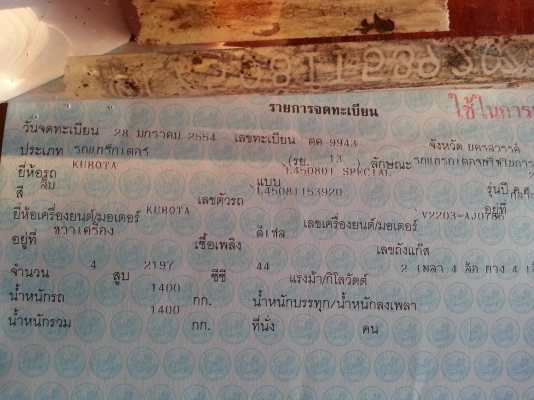 รายการจดทะเบียน
ใช้ในการ
วันจดทะเบียน 28 มกราคม 2554 เลขทะเบียน ตค 9943 จังหวัด นครสวรรค์
ประเภท รถแทรกเตอร์ (รย. 13 ) ลักษณะ
ยี่ห้อรถ KUBOTA แบบ L4508D1 SPECIAL รุ่นปี ค.ศ.
สี ส้ม เลขตัวรถ L45081153920 อยู่ที่
ยี่ห้อเครื่องยนต์/มอเตอร์ KUBOTA เลขเครื่องยนต์/มอเตอร์
อยู่ที่ ขวาเครื่อง เชื้อเพลิง ดีเซล เลขถังแก๊ส
จำนวน 4 สูบ 2197 ซีซี 44 แรงม้า/กิโลวัตต์ 2 เพลา 4 ล้อ ยาง 4
น้ำหนักรถ 1400 กก. น้ำหนักบรรทุก/น้ำหนักลงเพลา
น้ำหนักรวม 1400 กก. ที่นั่ง คน